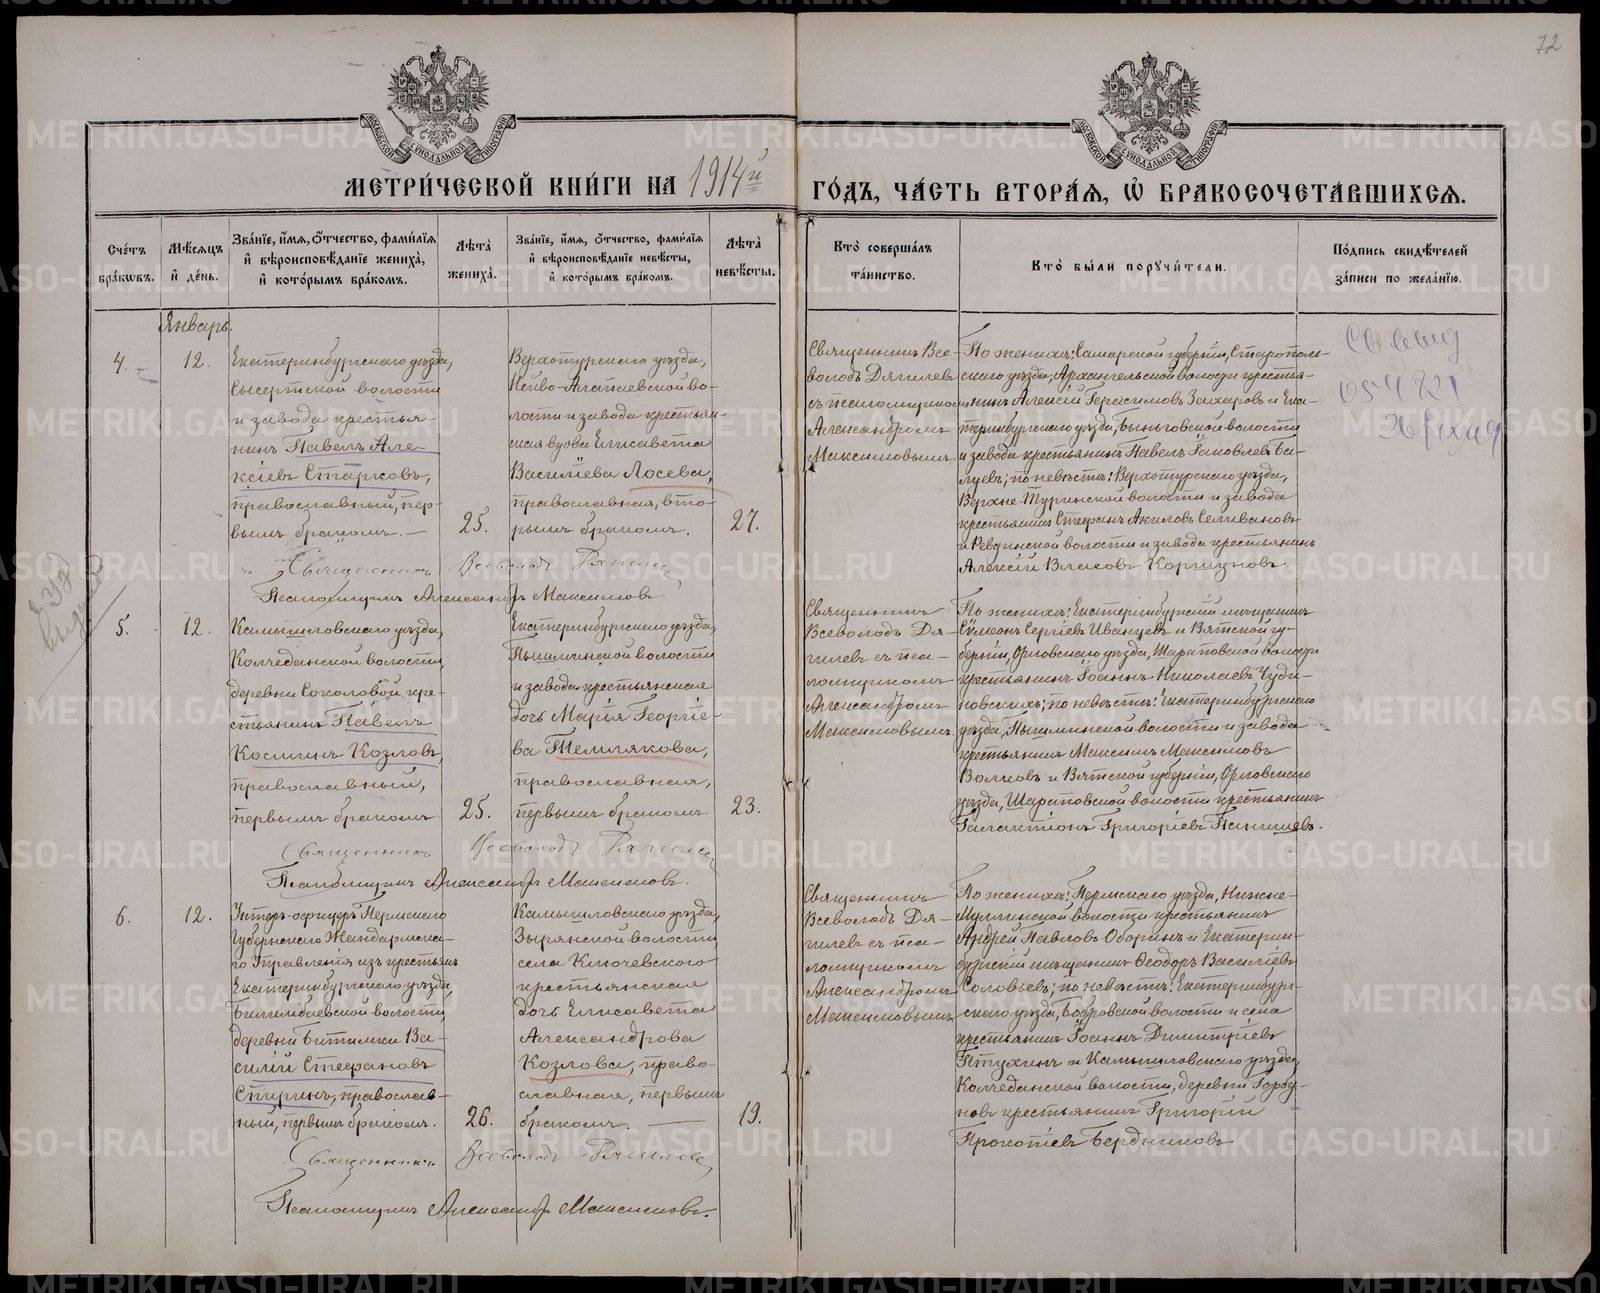 72
МОСКОВСКОЙ СѴНОДАЛЬНОЙ ТИПОГРАФІИ
МОСКОВСКОЙ СѴНОДАЛЬНОЙ ТИПОГРАФІИ
МЕТРИ́ЧЕСКОЙ КНИ́ГИ НА 1914й
ГО́ДЪ, ЧА́СТЬ ВТОРА́Я, Ѡ БРАКОСОЧЕТА́ВШИХСЯ.
Сче́тъ бра́ковъ.
Мѣ́сяцъ и де́нь.
Зва́нїе, и́мя, о́тчество, фами́лїя и вѣроисповѣ́данїе жениха̀, и кото́рымъ бра́комъ.
Лѣта̀ жениха̀.
Зва́нїе, и́мя, о́тчество, фами́лїя и вѣроисповѣ́данїе невѣ́сты, и кото́рымъ бра́комъ.
Лѣта̀ невѣ́сты.
Кто̀ соверша́лъ та́инство.
Кто̀ бы́ли порꙋчи́тели.
По́дпись свидѣ́телей за́писи по жела́нїю.
Январь.
4.
12.
Екатеринбургскаго уѣзда,
Сысертской волости
и завода крестья-
нинъ Павелъ Але-
ксіевъ Старковъ,
православный, пер-
вымъ бракомъ. —
25.
Верхотурскаго уѣзда,
Нейво-Алапаевской во-
лости и завода крестьян-
ская вдова Елисавета
Василіева Лосева,
православная, вто-
рымъ бракомъ.
27.
Священникъ Все-
володъ Дягилевъ
съ псаломщикомъ
Александромъ
Максимовымъ
По женихѣ: Самарской губерніи, Ставрополь-
скаго уѣзда, Архангельской волости крестья-
нинъ Алексій Герасимовъ Захаровъ и Ека-
теринбургскаго уѣзда, Быньговской волости
и завода крестьянинъ Павелъ Іаковлевъ Ба-
луевъ; по невѣстѣ: Верхотурскаго уѣзда,
Верхне-Туринской волости и завода
крестьянинъ Стефанъ Акиловъ Селивановъ
и Ревдинской волости и завода крестьянинъ
Алексій Власовъ Коршуновъ.
054821
Священникъ Всеволодъ Дягилевъ
Псаломщикъ Александръ Максимовъ
5.
12.
Камышловскаго уѣзда,
Колчеданской волости
деревни Соколовой, кре-
стьянинъ Павелъ
Косминъ Козловъ,
православный,
первымъ бракомъ
25.
Екатеринбургскаго уѣзда,
Пышминской волости
и завода крестьянская
дочь Марія Георгіе-
ва Темлякова,
православная,
первымъ бракомъ
23.
Священникъ
Всеволодъ Дя-
гилевъ съ пса-
ломщикомъ
Александромъ
Максимовымъ
По женихѣ: Екатеринбургскій мѣщанинъ
Сѵмеонъ Сергіевъ Иванцевъ и Вятской гу-
берніи, Орловскаго уѣзда, Шараповской волости
крестьянинъ Іоаннъ Николаевъ Чуди-
новскихъ; по невѣстѣ: Екатеринбургскаго
уѣзда, Пышминской волости и завода
крестьянинъ Максимъ Максимовъ
Волковъ и Вятской губерніи, Орловскаго
уѣзда, Шараповской волости крестьянинъ
Галактіонъ Григоріевъ Панишевъ.
Священникъ Всеволодъ Дягилевъ
Псаломщикъ Александръ Максимовъ.
6.
12.
Унтеръ-офицеръ Пермскаго
Губернскаго Жандармска-
го Управленія изъ крестьянъ
Екатеринбургскаго уѣзда,
Билимбаевской волости,
деревни Битимки Ва-
силій Стефановъ
Спиринъ, православ-
ный, первымъ бракомъ.
26.
Камышловскаго уѣзда,
Зырянской волости
села Ключевского
крестьянская
дочь Елисавета
Александрова
Козлова, право-
славная, первымъ
бракомъ. —
19.
Священникъ
Всеволодъ Дя-
гилевъ съ пса-
ломщикомъ
Александромъ
Максимовымъ
По женихѣ: Пермскаго уѣзда, Нижне-
Муллинской волости крестьянинъ
Андрей Павловъ Оборинъ и Екатерин-
бургскій мѣщанинъ Ѳеодоръ Василіевъ
Соловьевъ; по невѣстѣ: Екатеринбург-
скаго уѣзда, Бобровской волости и села
крестьянинъ Іоаннъ Димитріевъ
Птухинъ и Камышловскаго уѣзда,
Колчеданской волости, деревни Бороду-
новъ крестьянинъ Григорій
Прокопіевъ Бердниковъ
Священникъ Всеволодъ Дягилевъ
Псаломщикъ Александръ Максимовъ.
METRIKI.GASO-URAL.RU